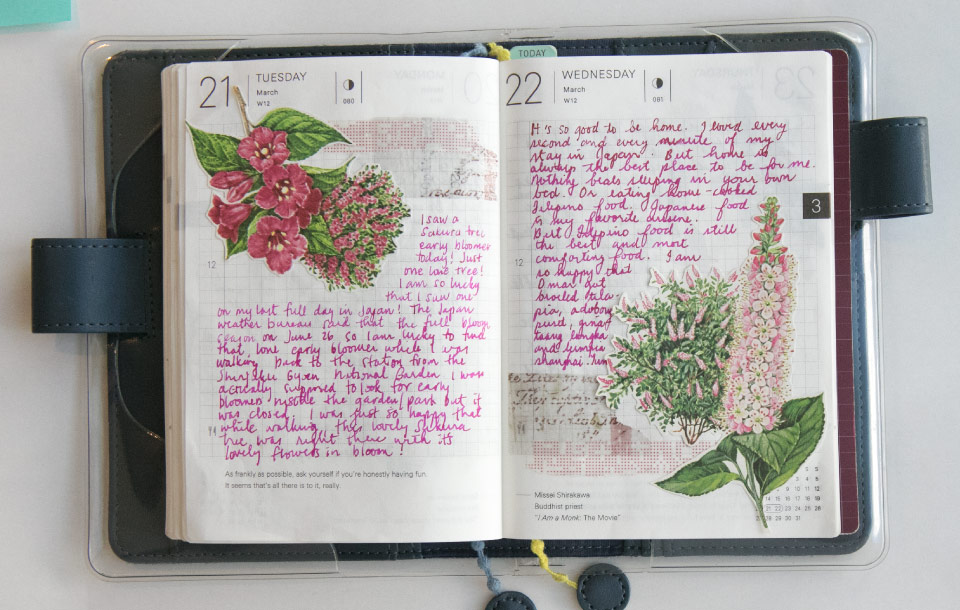 21
TUESDAY
March
W12
080
I saw a
Sakura tree
early bloomer
today! Just
one lone tree!
I am so lucky
that I saw one
12
on my last full day in Japan! The Japan
weather bureau said that the full bloom
season on June 26 so I am lucky to find
that lone early bloomer while I was
walking back to the station from the
Shinjuku Gyoen National Garden. I was
actually supposed to look for early
bloomers inside the garden/park but it
was closed. I was just so happy that
while walking, this lovely Sakura
tree was right there with its
lovely flowers in bloom!
As frankly as possible, ask yourself if you're honestly having fun.
It seems that's all there is to it, really.
TODAY
22
WEDNESDAY
March
W12
081
It's so good to be home. I loved every
second and every minute of my
stay in Japan. But home is
always the best place to be for me.
Nothing beats sleeping in your own
bed. Or eating home-cooked
Filipino food. Japanese food
is my favorite cuisine.
But Filipino food is still
the best and most
comforting food. I am
so happy that
Omar got
broiled tila
pia, adobong
pusit,
and lumpia
shanghai.
12
3
Missei Shirakawa
Buddhist priest
"I Am a Monk: The Movie"
14 15 16 17 18 19
21 22 23 24 25 26
28 29 30 31